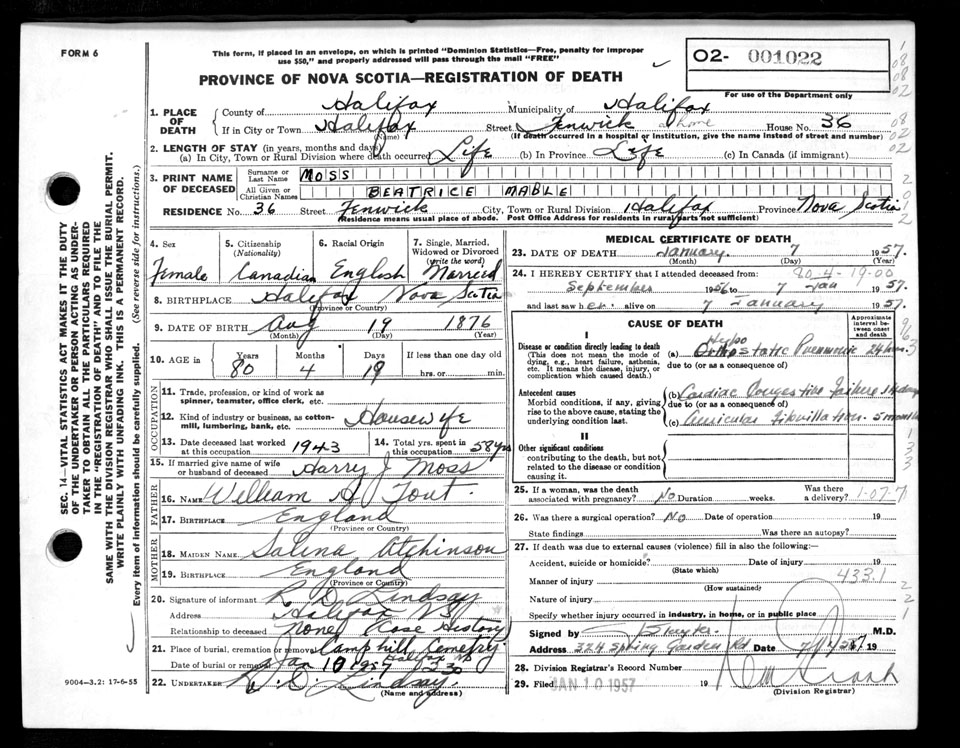 FORM 6
This form, if placed in an envelope, on which is printed "Dominion Statistics—Free, penalty for improper
use $50," and properly addressed will pass through the mail "FREE"
PROVINCE OF NOVA SCOTIA—REGISTRATION OF DEATH
O2- 001022
For use of the Department only
1. PLACE OF DEATH
County of Halifax Municipality of Halifax
If in City or Town Halifax Street Fenwick at home House No. 36
(If death occurred in a hospital or institution, give the name instead of street and number)
2. LENGTH OF STAY (in years, months and days)
(a) In City, Town or Rural Division where death occurred Life (b) In Province Life (c) In Canada (if immigrant)
3. PRINT NAME OF DECEASED
Surname or Last Name MOSS
All Given or Christian Names BEATRICE MABLE
RESIDENCE No. 36 Street Fenwick City, Town or Rural Division Halifax Province Nova Scotia
(Residence means usual place of abode. Post Office Address for residents in rural parts not sufficient)
4. Sex
Female
5. Citizenship (Nationality)
Canadian
6. Racial Origin
English
7. Single, Married, Widowed or Divorced (write the word)
Married
8. BIRTHPLACE Halifax Nova Scotia
(Province or Country)
9. DATE OF BIRTH Aug 19 1876
(Month) (Day) (Year)
10. AGE in Years Months Days If less than one day
80 4 19 hrs. or min.
OCCUPATION
11. Trade, profession, or kind of work as
spinner, teamster, office clerk, etc.
12. Kind of industry or business, as cotton-
mill, lumbering, bank, etc. Housewife
13. Date deceased last worked at this occupation 1943
14. Total yrs. spent in this occupation 58 yrs
15. If married give name of wife or husband of deceased Harry J Moss
FATHER
16. NAME William H Tout.
17. BIRTHPLACE England
(Province or Country)
MOTHER
18. MAIDEN NAME Salina Atchinson
19. BIRTHPLACE England
(Province or Country)
20. Signature of informant R. D. Lindsay
Address Halifax N.S.
Relationship to deceased None Case History
21. Place of burial, cremation or removal Camp hill Cemetry
Halifax
Date of burial or removal Jan 10 1957 2 30
22. UNDERTAKER R. D. Lindsay
(Name and address)
9004—3.2: 17-6-55
SEC. 14—VITAL STATISTICS ACT MAKES IT THE DUTY
OF THE UNDERTAKER OR PERSON ACTING AS UNDER-
TAKER TO OBTAIN ALL THE PARTICULARS REQUIRED
IN THE "REGISTRATION OF DEATH" AND TO FILE THE
SAME WITH THE DIVISION REGISTRAR WHO SHALL ISSUE THE BURIAL PERMIT.
WRITE PLAINLY WITH UNFADING INK. THIS IS A PERMANENT RECORD.
Every item of information should be carefully supplied. (See reverse side for instructions.)
MEDICAL CERTIFICATE OF DEATH
23. DATE OF DEATH January 7 1957.
(Month) (Day) (Year)
80-4-19-00
24. I HEREBY CERTIFY that I attended deceased from:
September 1956 to 7 Jan 1957.
and last saw her alive on 7 January 1957.
CAUSE OF DEATH
Approximate interval between onset and death
I
Disease or condition directly leading to death
(This does not mean the mode of dying, e.g., heart failure, asthenia, etc. It means the disease, injury, or complication which caused death.)
(a) Hypostatic Pneumonia 24 hrs.
due to (or as a consequence of)
Antecedent causes
Morbid conditions, if any, giving rise to the above cause, stating the underlying condition last.
(b) Cardiac Congestive failure
due to (or as a consequence of)
(c) Auricular fibrillation 5 months
II
Other significant conditions
contributing to the death, but not related to the disease or condition causing it.
25. If a woman, was the death associated with pregnancy? No Duration weeks. Was there a delivery? 1-07-7
26. Was there a surgical operation? No Date of operation 19
State findings Was there an autopsy?
27. If death was due to external causes (violence) fill in also the following:
Accident, suicide or homicide? Date of injury 19
(State which)
Manner of injury 433.1
(How sustained)
Nature of injury
Specify whether injury occurred in industry, in home, or in public place
Signed by M.D.
Address 324 Spring Garden Rd Date 19
28. Division Registrar's Record Number
29. Filed JAN 10 1957 19
(Division Registrar)